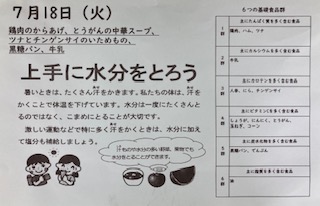 7月18日（火）
鶏肉のからあげ、とうがんの中華スープ、
ツナとチンゲンサイのいためもの、
黒糖パン、牛乳
上手に水分をとろう
暑いときは、たくさん汗をかきます。私たちの体は、汗を
かくことで体温を下げています。水分は一度にたくさんと
るのではなく、こまめにとることが大切です。
激しい運動などで特に多く汗をかくときは、水分に加え
て塩分も補給しましょう。
汁ものや水分の多い野菜、果物でも
水分をとることができます。
6つの基礎食品群
主にたんぱく質を多く含む食品
1群
鶏肉、ハム、ツナ
主にカルシウムを多く含む食品
2群
牛乳
主にカロテンを多く含む食品
3群
人参、にら、チンゲンサイ
主にビタミンCを多く含む食品
4群
しょうが、にんにく、とうがん、
玉ねぎ、コーン
主に炭水化物を多く含む食品
5群
黒糖パン、でんぷん
主に脂質を多く含む食品
6群
油